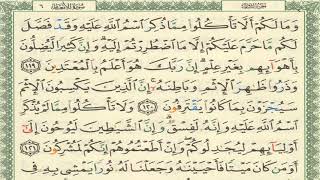 سُورَةُ الأَنْعَامِ ٦
وَمَا لَكُمْ أَلَّا تَأْكُلُواْ مِمَّا ذُكِرَ ٱسْمُ ٱللَّهِ عَلَيْهِ وَقَدْ فَصَّلَ
لَكُم مَّا حَرَّمَ عَلَيْكُمْ إِلَّا مَا ٱضْطُرِرْتُمْ إِلَيْهِ وَإِنَّ كَثِيرًا لَّيُضِلُّونَ
بِأَهْوَآئِهِم بِغَيْرِ عِلْمٍ إِنَّ رَبَّكَ هُوَ أَعْلَمُ بِٱلْمُعْتَدِينَ ١١٩
وَذَرُواْ ظَـٰهِرَ ٱلْإِثْمِ وَبَاطِنَهُۥٓ إِنَّ ٱلَّذِينَ يَكْسِبُونَ ٱلْإِثْمَ
سَيُجْزَوْنَ بِمَا كَانُواْ يَقْتَرِفُونَ ١٢٠ وَلَا تَأْكُلُواْ مِمَّا لَمْ يُذْكَرِ
ٱسْمُ ٱللَّهِ عَلَيْهِ وَإِنَّهُۥ لَفِسْقٌ وَإِنَّ ٱلشَّيَـٰطِينَ لَيُوحُونَ إِلَىٰٓ
أَوْلِيَآئِهِمْ لِيُجَـٰدِلُوكُمْ وَإِنْ أَطَعْتُمُوهُمْ إِنَّكُمْ لَمُشْرِكُونَ ١٢١
أَوَمَن كَانَ مَيْتًا فَأَحْيَيْنَـٰهُ وَجَعَلْنَا لَهُۥ نُورًا يَمْشِى بِهِۦ فِى